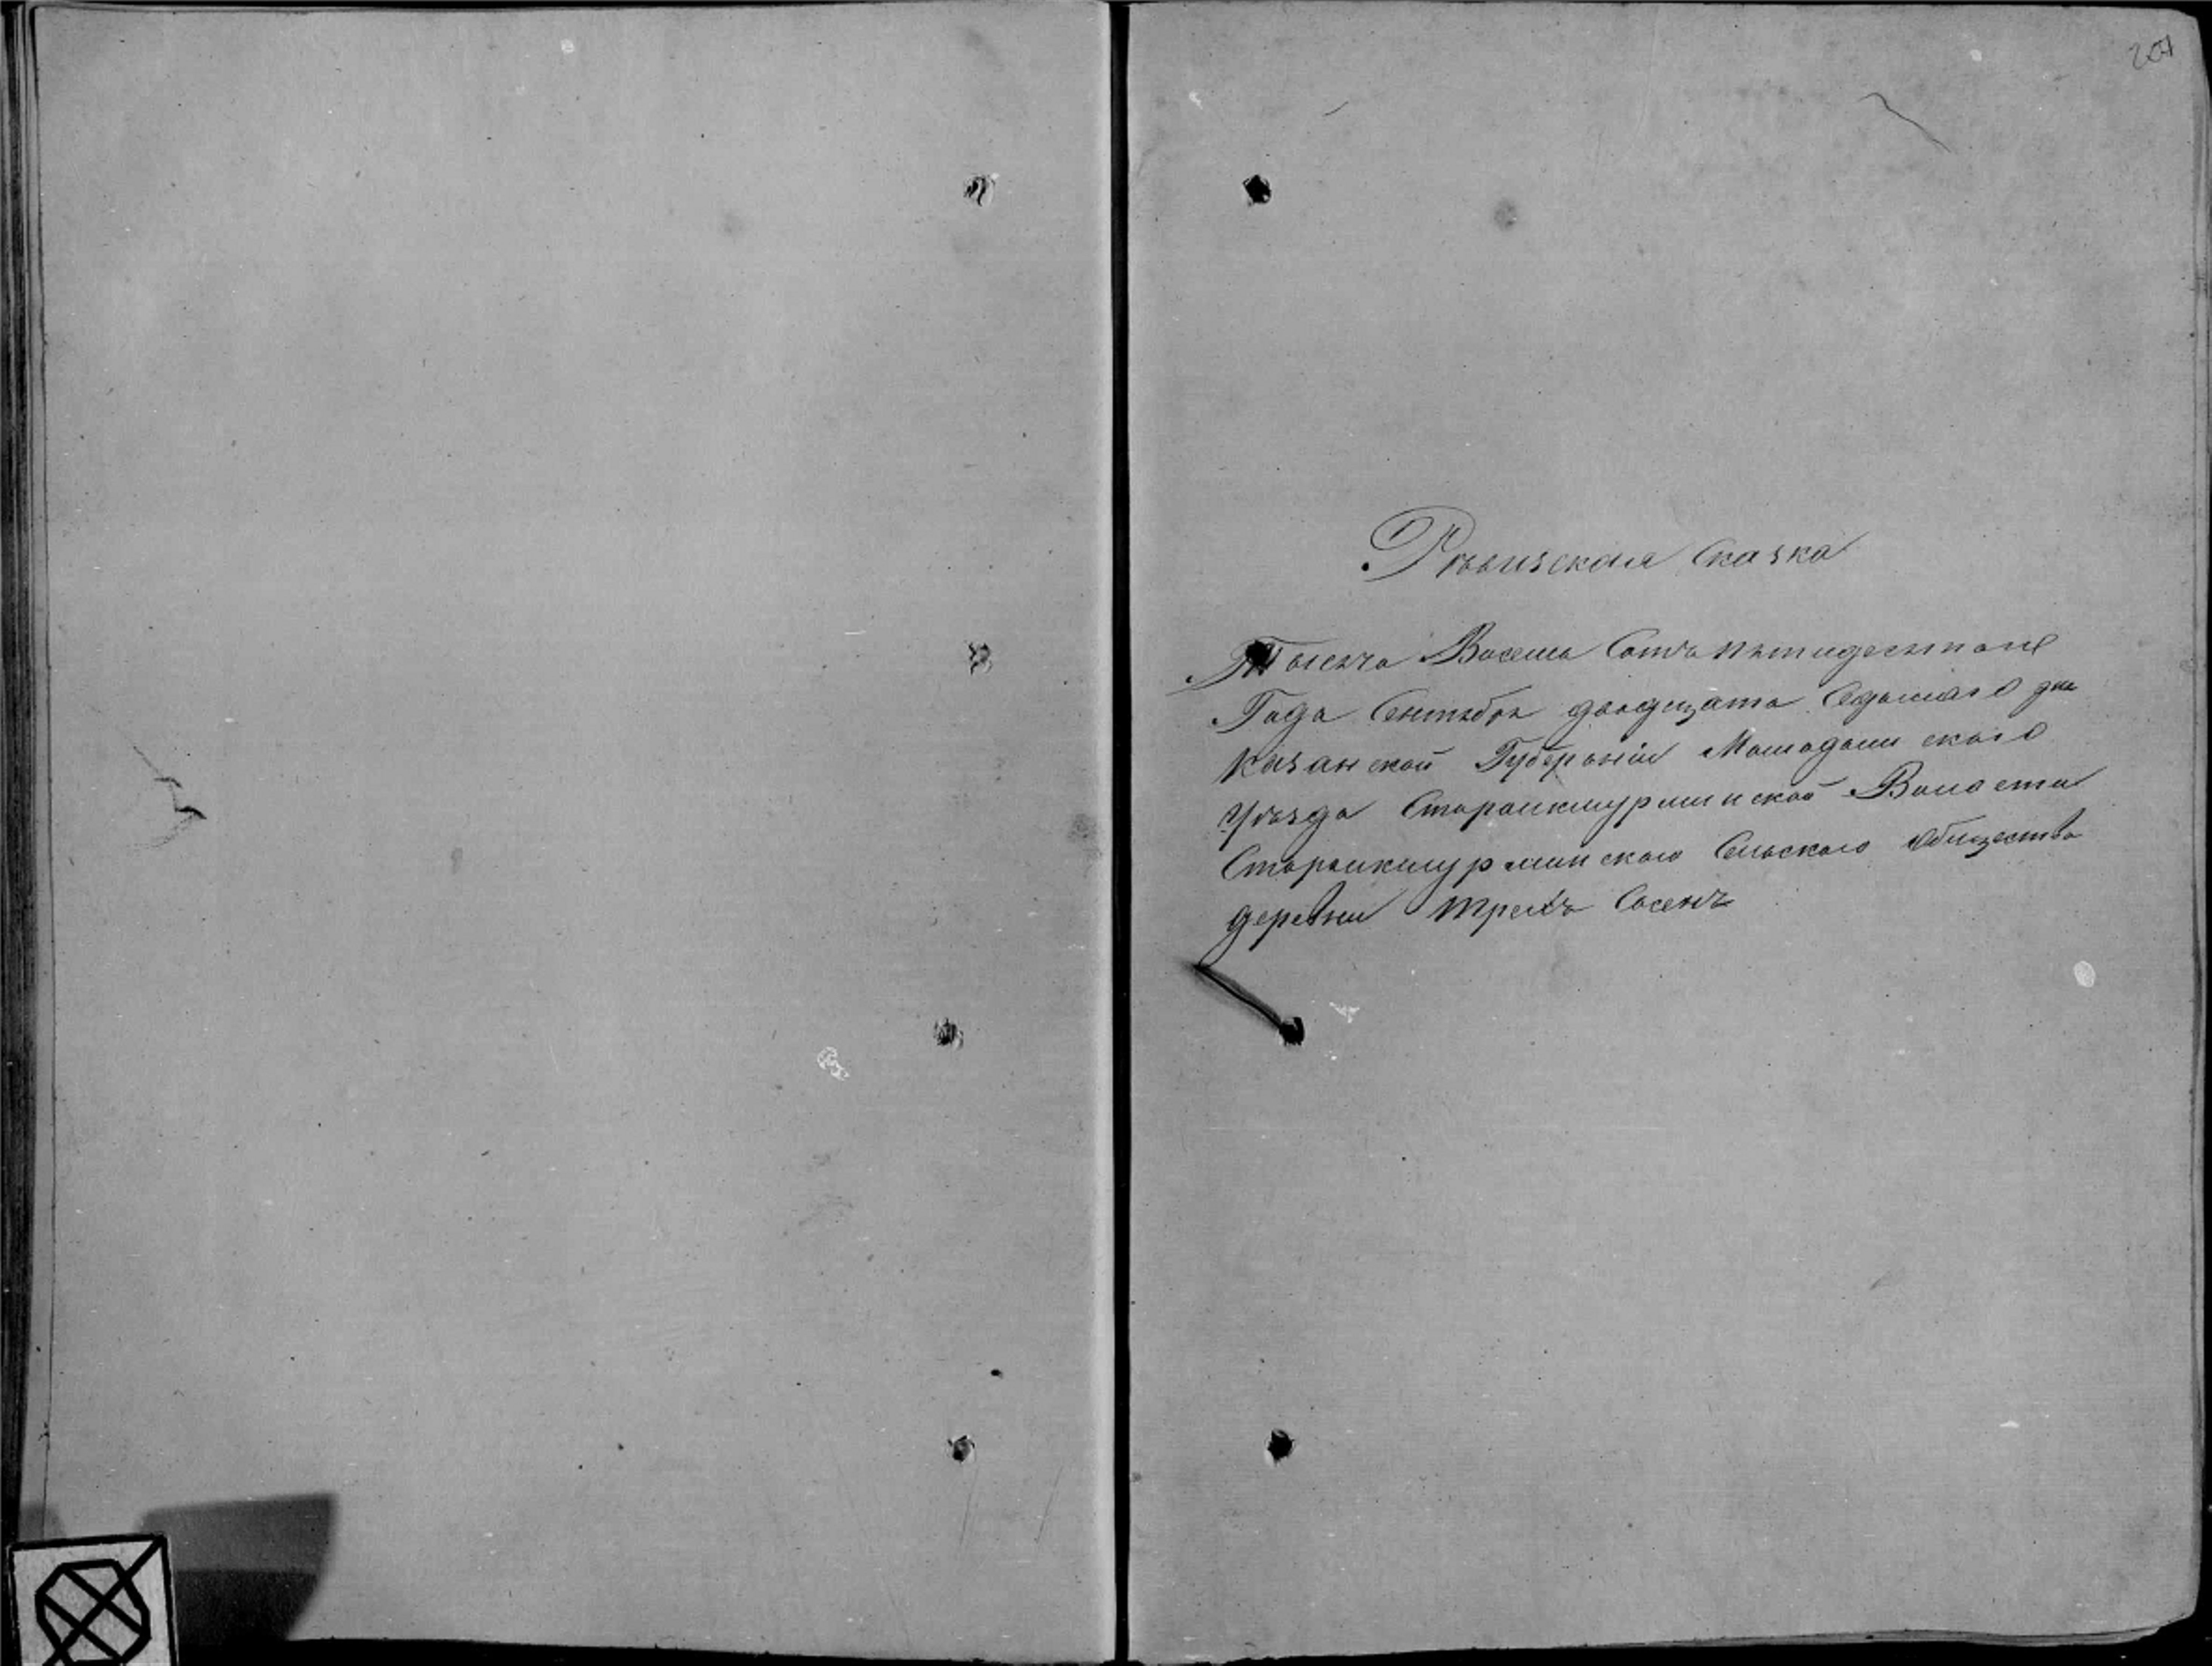 201
Ревизская Сказка
Тысеча Восемь Сотъ пятидесятаго
Года Сентября двадцать Седьмаго дня
Казанской Губерніи Мамадыш скаго
Уѣзда Староикшурмин ской Волости
Староикшурмин скаго Сельскаго Общества
деревни Трехъ Сосенъ